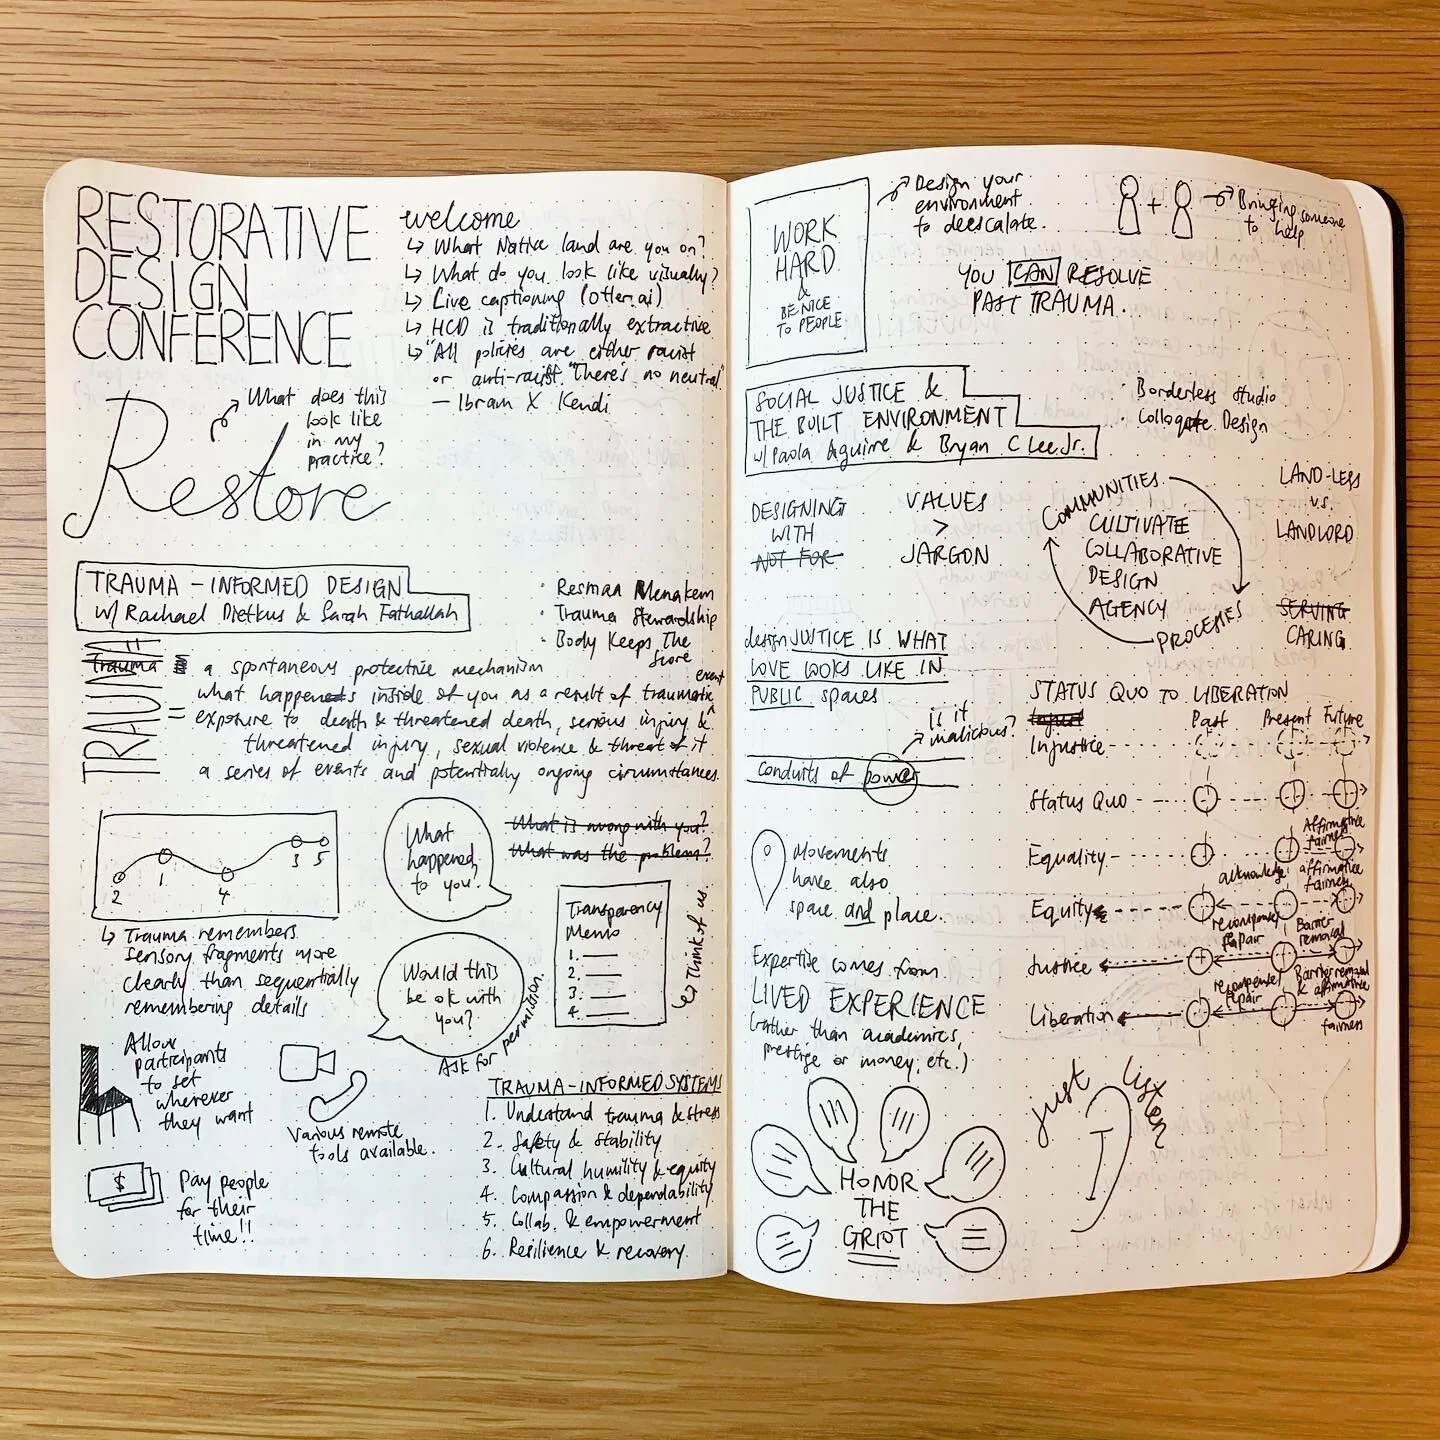 RESTORATIVE
DESIGN
CONFERENCE
welcome
↳ What Native land are you on?
↳ What do you look like visually?
↳ Live captioning (otter.ai)
↳ HCD is traditionally extractive
↳ "All policies are either racist
or anti-racist. "There's no neutral"
— Ibram X Kendi
What does this
look like
in my
practice?
Restore
TRAUMA-INFORMED DESIGN
w/ Rachael Dietkus & Sarah Fathallah
· Resman Menakem
· Trauma Stewardship
· Body Keeps The
Score
Trauma
TRAUMA
= a spontaneous protective mechanism
what happens inside of you as a result of traumatic event
exposure to death & threatened death, serious injury &
threatened injury, sexual violence & threat of it
a series of events and potentially ongoing circumstances.
2 1 4 3 5
↳ Trauma remembers
sensory fragments more
clearly than sequentially
remembering details
What
happened
to you?
What is wrong with you?
What was the problem?
Would this
be ok with
you?
Ask for permission.
Transparency
Memo
1.
2.
3.
4.
↳ Think of us.
Allow
participants
to set
wherever
they want
Various remote
tools available.
$
Pay people
for their
time!!
TRAUMA-INFORMED SYSTEMS
1. Understand trauma & stress
2. Safety & stability
3. Cultural humility & equity
4. Compassion & dependability
5. Collab. & empowerment
6. Resilience & recovery.
WORK
HARD
&
BE NICE
TO PEOPLE
Design your
environment
to deescalate.
+
Bringing someone
to help
YOU CAN RESOLVE
PAST TRAUMA.
SOCIAL JUSTICE &
THE BUILT ENVIRONMENT
w/ Paola Aguirre & Bryan C Lee Jr.
· Borderless Studio
· Colloqate Design
DESIGNING
WITH
NOT FOR
VALUES
>
JARGON
COMMUNITIES
CULTIVATE
COLLABORATIVE
DESIGN
AGENCY
PROCESSES
LAND-LESS
vs.
LANDLORD
SERVING
CARING
design JUSTICE IS WHAT
LOVE LOOKS LIKE IN
PUBLIC spaces
is it
malicious?
conduits of power
Movements
have also
space and place.
Expertise comes from
LIVED EXPERIENCE
(rather than academics,
prestige or money, etc.)
HONOR
THE
GRIOT
STATUS QUO TO LIBERATION
Past Present Future
Injustice
Status Quo
Affirmative
fairness
Equality
acknowledge affirmative
fairness
Equity
recompense Barrier
repair removal
Justice
recompense Barrier removal
repair & affirmative
Liberation
fairness
just listen